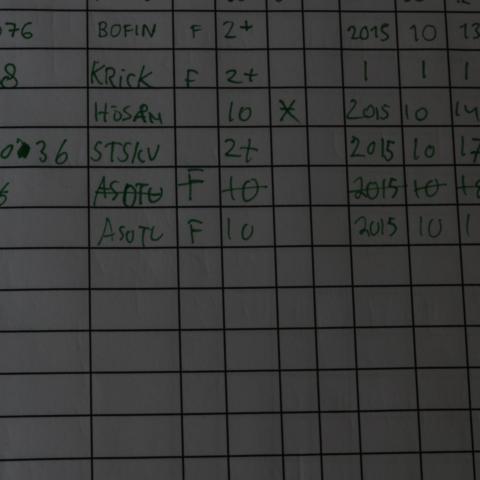 076 BOFIN F 2+ 2015 10 13
8 KRICK F 2+ 1 1 1
HOSAM 10 X 2015 10 14
036 STSKV 2+ 2015 10 17
ASOTU F 10 2015 10 18
ASOTU F 10 2015 10 1